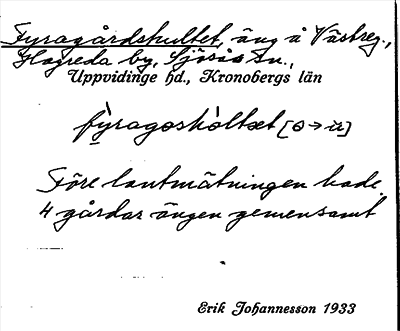 Fyragårdshultet, äng å Västreg.,
Hagreda by, Sjösås sn.,
Uppvidinge hd., Kronobergs län
Före lantmätningen hade
4 gårdar ängen gemensamt
Erik Johannesson 1933